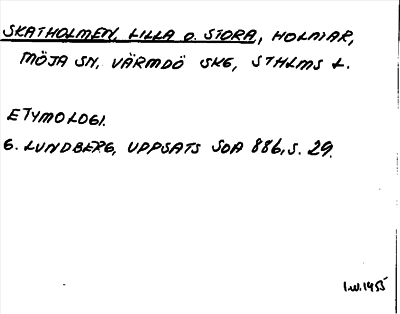 SKATHOLMEN, LILLA O. STORA, HOLMAR,
MÖJA SN, VÄRMDÖ SKG, STHLMS L.
ETYMOLOGI.
G. LUNDBERG, UPPSATS SOA 886, S. 29.
I.W. 1955